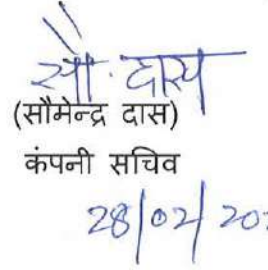 सौ. दास
(सौमेन्द्र दास)
कंपनी सचिव
28/02/20